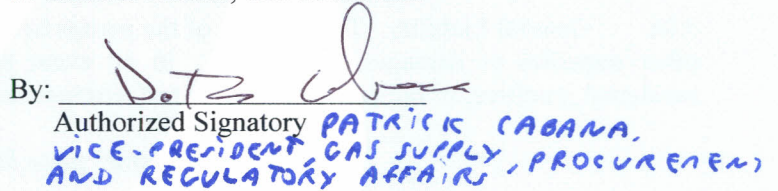 By:
Authorized Signatory PATRICK CABANA,
VICE-PRESIDENT, GAS SUPPLY, PROCUREMENT
AND REGULATORY AFFAIRS